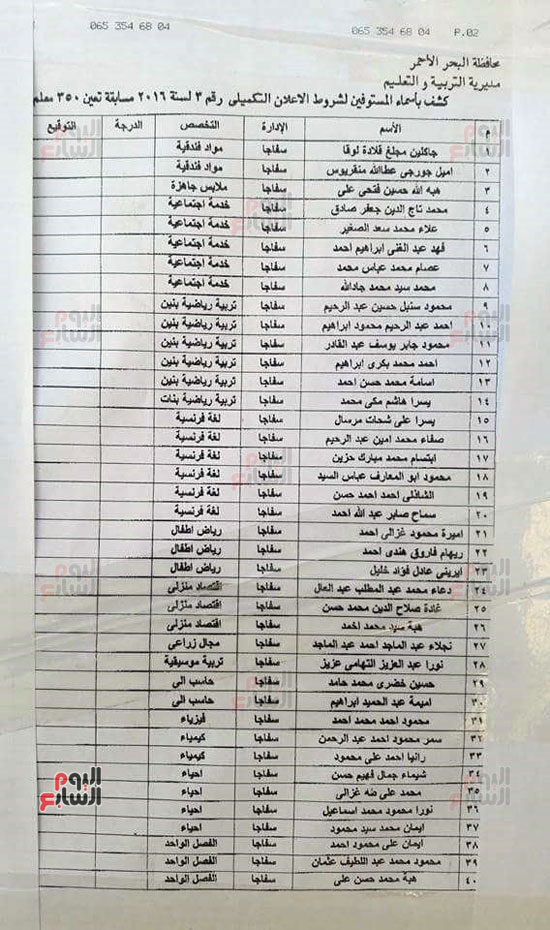 065 354 68 04 065 354 68 04 P.02
محافظة البحر الأحمر
مديرية التربية و التعليم
كشف بأسماء المستوفين لشروط الاعلان التكميلى رقم ٣ لسنة ٢٠١٦ مسابقة تعين ٣٥٠ معلم
م الأسم الإدارة التخصص الدرجة التوقيع
١ جاكلين مجلع قلادة لوقا سفاجا مواد فندقية
٢ اميل جورجى عطاالله منقريوس سفاجا مواد فندقية
٣ هبه الله حسين فتحى على سفاجا ملابس جاهزة
٤ محمد تاج الدين جعفر صادق سفاجا خدمة اجتماعية
٥ علاء محمد سعد الصغير سفاجا خدمة اجتماعية
٦ فهد عبد الغنى ابراهيم احمد سفاجا خدمة اجتماعية
٧ عصام محمد عباس محمد سفاجا خدمة اجتماعية
٨ محمد سيد محمد جادالله سفاجا خدمة اجتماعية
٩ محمود سنبل حسين عبد الرحيم سفاجا تربية رياضية بنين
١٠ احمد عبد الرحيم محمود ابراهيم سفاجا تربية رياضية بنين
١١ محمود جابر يوسف عبد القادر سفاجا تربية رياضية بنين
١٢ احمد محمد بكرى ابراهيم سفاجا تربية رياضية بنين
١٣ اسامة محمد حسن احمد سفاجا تربية رياضية بنين
١٤ يسرا هاشم مكى محمد سفاجا تربية رياضية بنات
١٥ يسرا على شحات مرسال سفاجا لغة فرنسية
١٦ صفاء محمد امين عبد الرحيم سفاجا لغة فرنسية
١٧ ابتسام محمد مبارك حزين سفاجا لغة فرنسية
١٨ محمود ابو المعارف عباس السيد سفاجا لغة فرنسية
١٩ الشاذلى احمد احمد حسن سفاجا لغة فرنسية
٢٠ سماح صابر عبد الله احمد سفاجا لغة فرنسية
٢١ اميرة محمود غزالى احمد سفاجا رياض اطفال
٢٢ ريهام فاروق هندى احمد سفاجا رياض اطفال
٢٣ ايرينى عادل فؤاد خليل سفاجا رياض اطفال
٢٤ دعاء محمد عبد المطلب عبد العال سفاجا اقتصاد منزلى
٢٥ غادة صلاح الدين محمد حسن سفاجا اقتصاد منزلى
٢٦ هبة سيد محمد احمد سفاجا اقتصاد منزلى
٢٧ نجلاء عبد الماجد احمد عبد الماجد سفاجا مجال زراعى
٢٨ نورا عبد العزيز التهامى عزيز سفاجا تربية موسيقية
٢٩ حسين خضرى محمد حامد سفاجا حاسب الى
٣٠ اميمة عبد الحميد ابراهيم سفاجا حاسب الى
٣١ محمود احمد محمد احمد سفاجا فيزياء
٣٢ سمر محمود احمد عبد الرحمن سفاجا كيمياء
٣٣ رانيا احمد على محمود سفاجا كيمياء
٣٤ شيماء جمال فهيم حسن سفاجا احياء
٣٥ محمد على طه غزالى سفاجا احياء
٣٦ نورا محمود محمد اسماعيل سفاجا احياء
٣٧ ايمان محمد سيد محمود سفاجا احياء
٣٨ ايمان على محمود احمد سفاجا الفصل الواحد
٣٩ محمود محمد عبد اللطيف عثمان سفاجا الفصل الواحد
٤٠ هبة محمد حسن على سفاجا الفصل الواحد
اليوم السابع